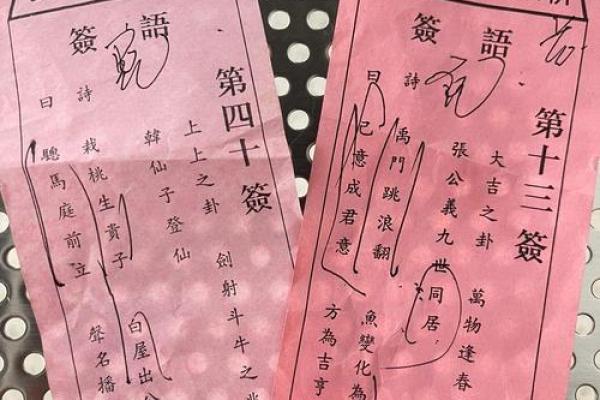 簽語
第四十簽
上上之卦 劍射斗牛之
韓仙子登仙
詩曰
栽桃生貴子 白屋出
聰馬庭前立 聲名播
簽語
第十三簽
大吉之卦 萬物逢春
張公義九世同居
詩曰
禹門跳浪翻 魚變化為
已意成君意 方為吉亨